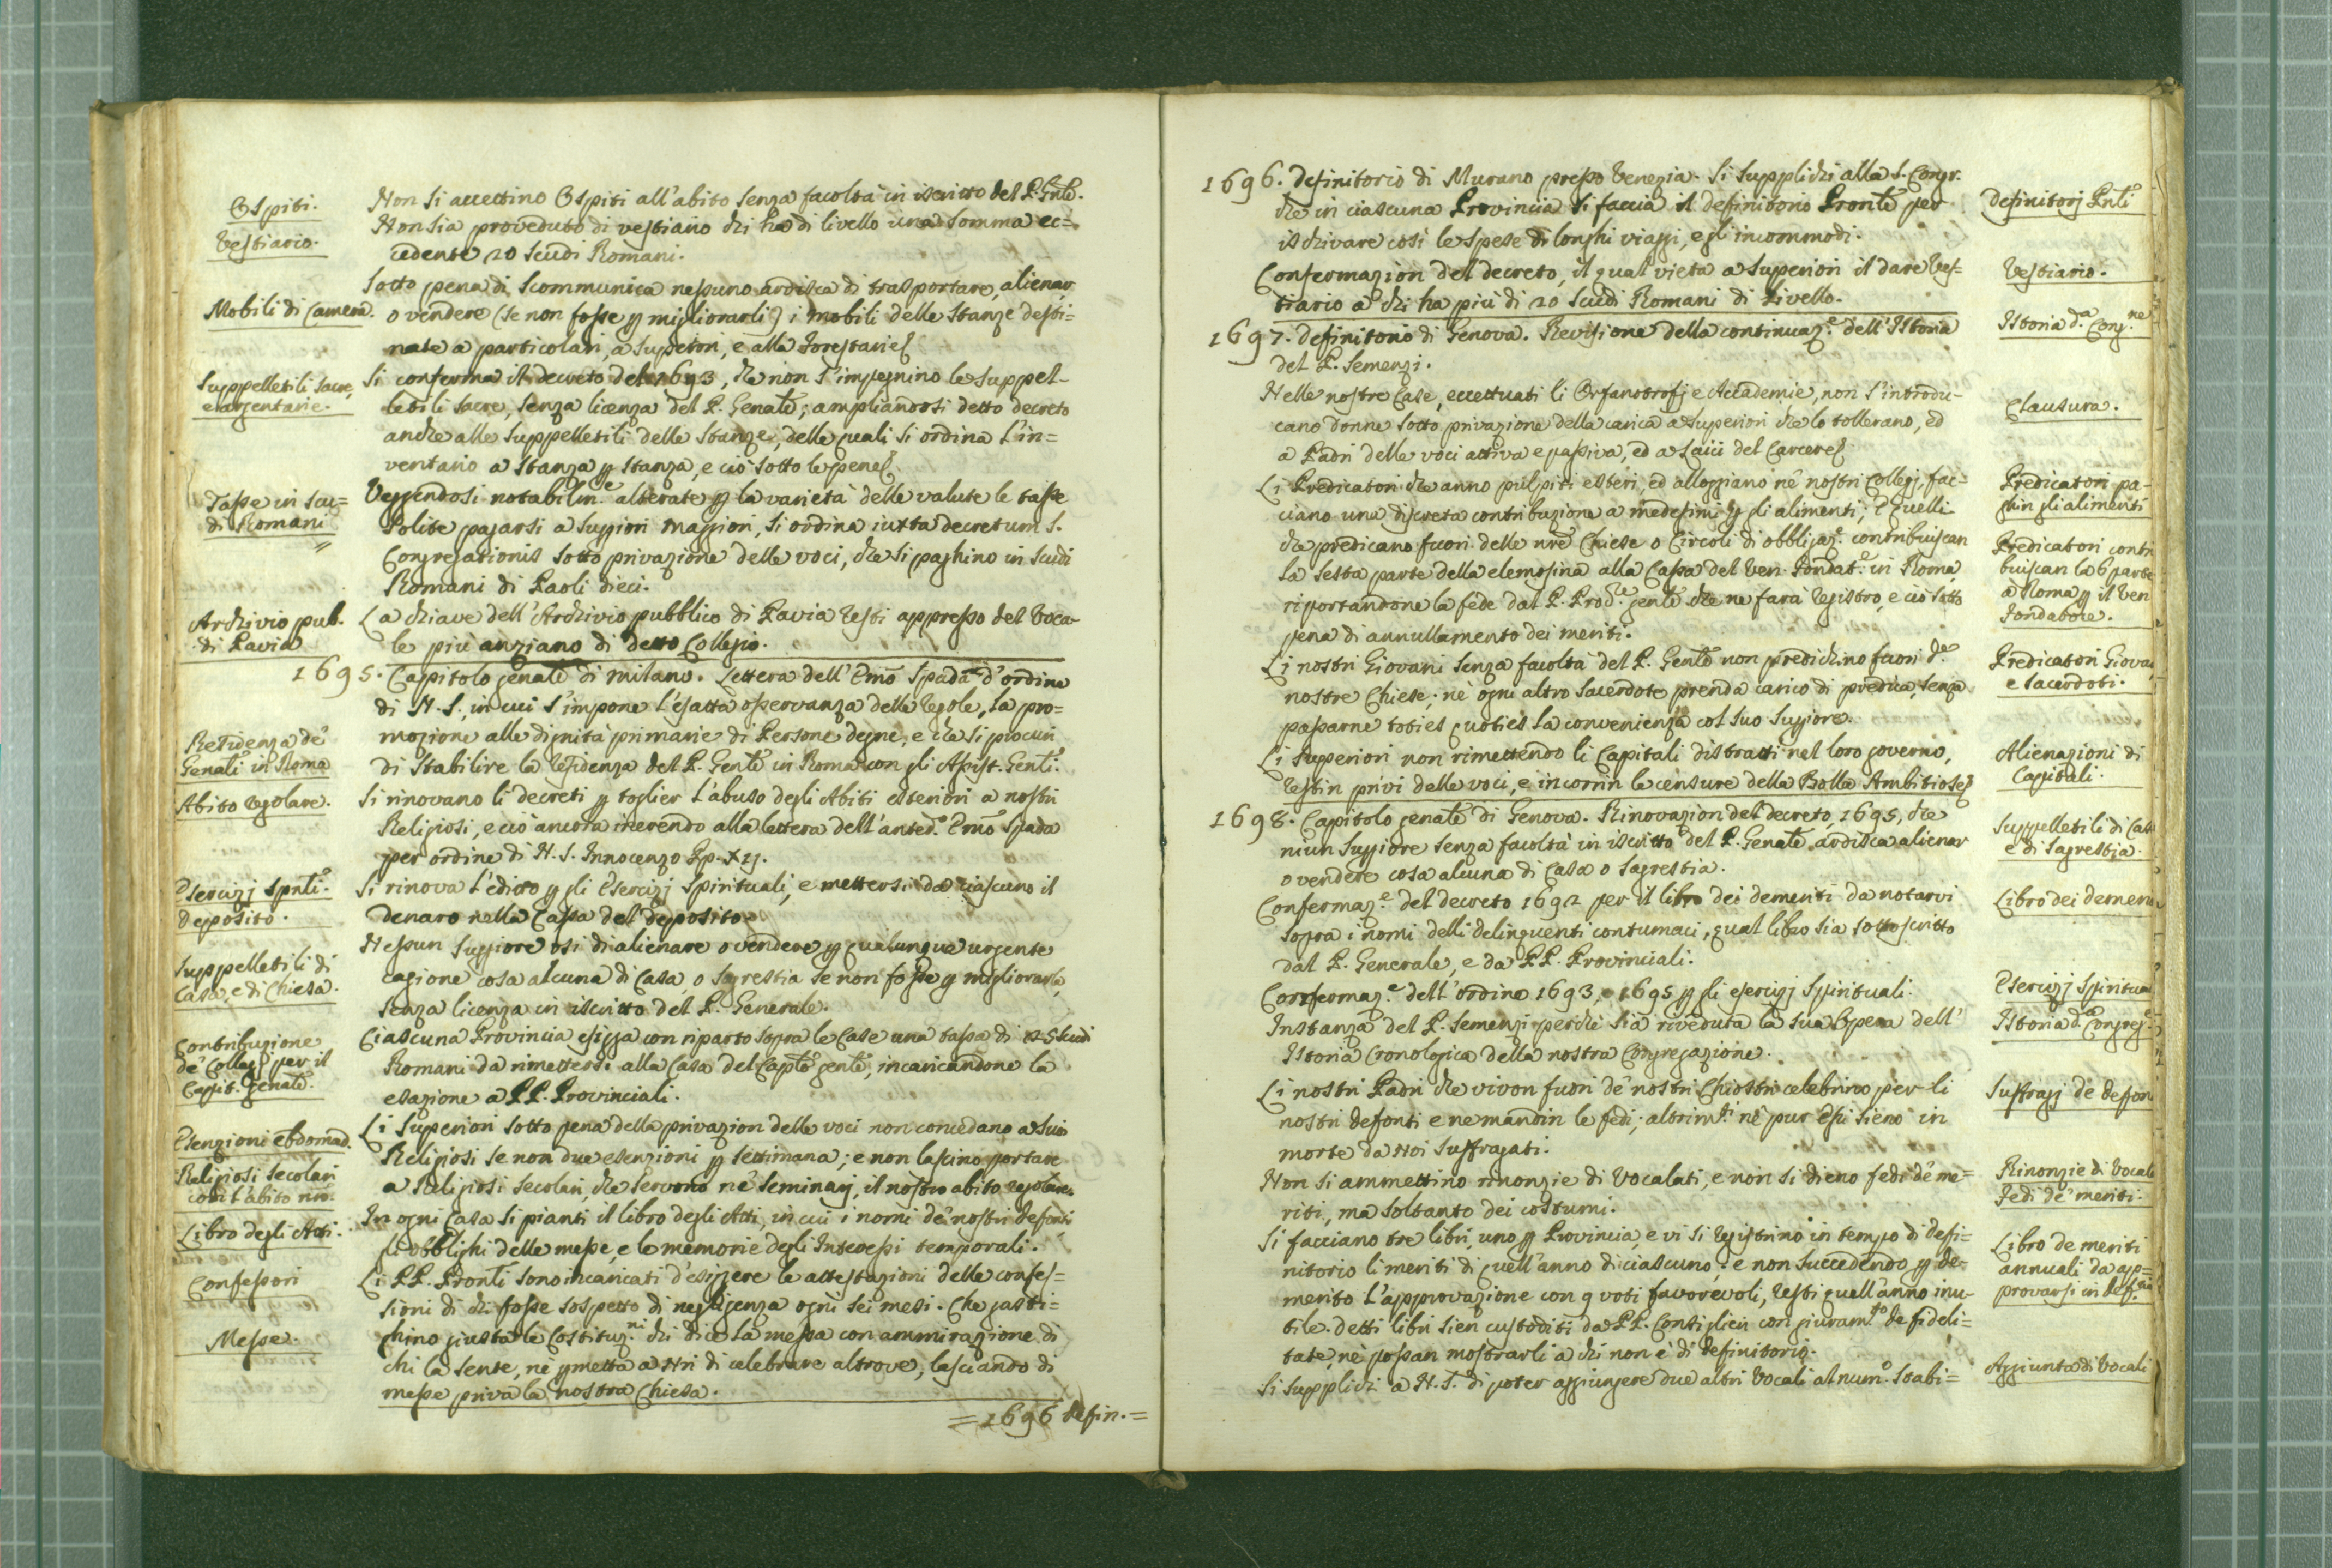 Ospiti.
Non si accettino Ospiti all'abito senza facoltà in iscritto del P. Gnle.
Vestiario.
Non sia proveduto di vestiario chi ha di livello una somma ec=
cedente 20 Scudi Romani.
Mobili di Camera.
Sotto pena di Scommunica nessuno ardisca di trasportare, alienar
o vendere (se non fosse p migliorarli) i mobili delle Stanze desti=
nate a particolari, a Superiori, e alla Forestarie
Suppelletili sacre,
e argentarie.
Si conferma il decreto del 1693, che non s'impegnino le suppel-
letili sacre, senza licenza del P. Genale; ampliandosi detto decreto
anche alle Suppelletili delle Stanze, delle quali si ordina l'in=
ventario a Stanza p Stanza, e ciò sotto le pene
Tasse in Scu=
di Romani
Veggendosi notabilm.e alterate p la varietà delle valute le tasse
solite pagarsi a Suppiori maggiori, si ordina iuxta decretum S.
Congregationis sotto privazione delle voci, che si paghino in Scudi
Romani di Paoli dieci.
Archivio pub.
di Pavia
La chiave dell'Archivio pubblico di Pavia resti appresso del Voca-
le più anziano di detto Collegio.
1695. Capitolo genale di Milano. Lettera dell'Emo Spada d'ordine
di N. S., in cui s'impone l'esatta osservanza delle regole, la pro=
mozione alle dignità primarie di Persone degne, e che si procuri
Residenza de'
Genali in Roma
di stabilire la residenza del P. Genle in Roma con gli Assist. Genli.
Abito regolare.
Si rinovano li decreti p toglier l'abuso degli Abiti esteriori a nostri
Religiosi, e ciò ancora inerendo alla lettera dell'anted.o Emo Spada
per ordine di N. S. Innocenzo Pp. XII.
Esercizj Spnli.
Deposito.
Si rinova l'editto p gli Esercizj Spirituali, e mettersi da ciascuno il
denaro nella Cassa del deposito
Suppelletili di
Casa, e di Chiesa.
Nessun Suppiore osi di alienare o vendere p qualunque urgente
cagione cosa alcuna di Casa, o Sagrestia se non fosse p migliorarla,
senza licenza in iscritto del P. Generale.
Contribuzione
de' Collegj per il
Capit. genale.
Ciascuna Provincia esigga con riparto sopra le Case una tassa di 25 Scudi
Romani da rimettersi alla Casa del Caplo genle, incaricandone la
esazione a PP. Provinciali.
Esenzioni ebdomad.
Li Superiori sotto pena della privazion delle voci non concedano a suoi
Religiosi se non due esenzioni p settimana; e non lascino portare
Religiosi secolari
con l'abito nro.
a Religiosi secolari, che servono ne' Seminarj, il nostro abito regolare.
Libro degli Atti.
In ogni Casa si pianti il libro degli Atti, in cui i nomi de' nostri defonti,
gli obblighi delle messe, e le memorie degli Interessi temporali.
Confessori
Li PP. Pronli sono incaricati d'esiggere le attestazioni delle confes=
sioni di chi fosse sospetto di negligenza ogni sei mesi. Che gasti=
Messe.
ghino giusta le Costituz.ni chi dice la messa con ammirazione di
chi la sente, nè pmetta a Nri di celebrare altrove, lasciando di
messe priva la nostra Chiesa.
= 1696 defin. =
1696. Definitorio di Murano presso Venezia. Si supplichi alla S. Congr.
Definitorj Pnli
che in ciascuna Provincia si faccia il definitorio Pronle per
ischivare così le spese di longhi viaggi, e gl'incommodi.
Vestiario.
Confermazion del decreto, il qual vieta a Superiori il dare Ves=
tiario a chi ha più di 20 Scudi Romani di Livello.
Istoria d.a Cong.ne
1697. Definitorio di Genova. Revisione della continuaz.e dell'Istoria
del P. Semenzi.
Clausura.
Nelle nostre Case, eccettuati li Orfanotrofj e Accademie, non s'introdu-
cano donne sotto privazione della carica a Superiori che lo tollerano, ed
a Padri delle voci attiva e passiva, ed a Laici del Carcere
Predicatori pa-
ghin gli alimenti
Li Predicatori che anno pulpiti esteri, ed alloggiano ne' nostri Collegj, fac=
ciano una discreta contribuzione a medesimi p gli alimenti; E quelli
Predicatori contri
buiscan la 6 parte
a Roma p il Ven
Fondatore.
che predicano fuori delle nre Chiese o Circoli di obbligaz.e contribuiscan
la sesta parte della elemosina alla Cassa del Ven. Fondat.e in Roma,
riportandone la fede dal P. Proc.re genle che ne farà registro, e ciò sotto
pena di annullamento dei meriti.
Predicatori Giova
e Sacerdoti.
Li nostri Giovani senza facoltà del P. Genle non predichino fuori d.e
nostre Chiese; nè ogni altro Sacerdote prenda carico di predica, senza
passarne toties quoties la convenienza col suo Suppiore.
Alienazioni di
Capitali.
Li Superiori non rimettendo li Capitali distratti nel loro governo,
restin privi delle voci, e incorrin le censure della Bolla Ambitiose
1698. Capitolo genale di Genova. Rinovazion del decreto, 1695, che
Suppelletili di Cas
e di Sagrestia.
niun Suppiore senza facoltà in iscritto del P. Genale ardisca alienar
o vendere cosa alcuna di Casa o Sagrestia.
Libro dei demeri
Confermaz.e del decreto 1692 per il libro dei demeriti da notarvi
sopra i nomi delli delinquenti contumaci, qual libro sia sottoscritto
dal P. Generale, e da PP. Provinciali.
Esercizj Spiritua
Confermaz.e dell'ordine 1693, e 1695 p gli esercizj Spirituali.
Istoria d.a Congreg.
Instanza del P. Semenzi perchè sia riveduta la sua Opera dell'
Istoria Cronologica della nostra Congregazione.
Suffragj de defon
Li nostri Padri che vivon fuori de' nostri Chiostri celebrino per li
nostri defonti e ne mandin le fedi; altrim.ti nè pur essi sieno in
morte da Noi suffragati.
Rinonzie di Vocala
Fedi de' meriti.
Non si ammettino rinonzie di Vocalati, e non si dieno fedi de' me=
riti, ma soltanto dei costumi.
Libro de meriti
annuali da ap=
provarsi in def.rio
Si facciano tre libri, uno p Provincia, e vi si registrino in tempo di defi=
nitorio li meriti di quell'anno di ciascuno; e non succedendo p de-
merito l'approvazione con 9 voti favorevoli, resti quell'anno inu-
tile. Detti libri sien custoditi da PP. Consiglieri con giuram.to de fideli=
tate, nè possan mostrarli a chi non è di Definitorio.
Aggiunta di Vocali
Si supplichi a N. S. di poter aggiungere due altri Vocali al num.o stabi=